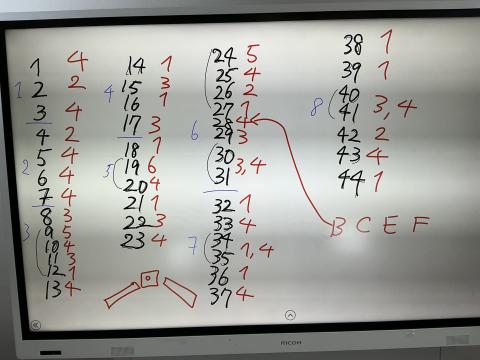 1 4
1 2 2
3 4
4 2
2 5 4
6 4
7 4
8 3
3 9 5
10 4
11 3
12 1
13 4
14 1
4 15 3
16 1
17 3
18 1
5 19 6
20 4
21 1
22 3
23 4
24 5
25 4
26 2
27 1
28 4
6 29 3
30
31 3,4
32 1
33 4
7 34
35 1,4
36 1
37 4
38 1
39 1
8 40
41 3,4
42 2
43 4
44 1
B C E F
RICOH